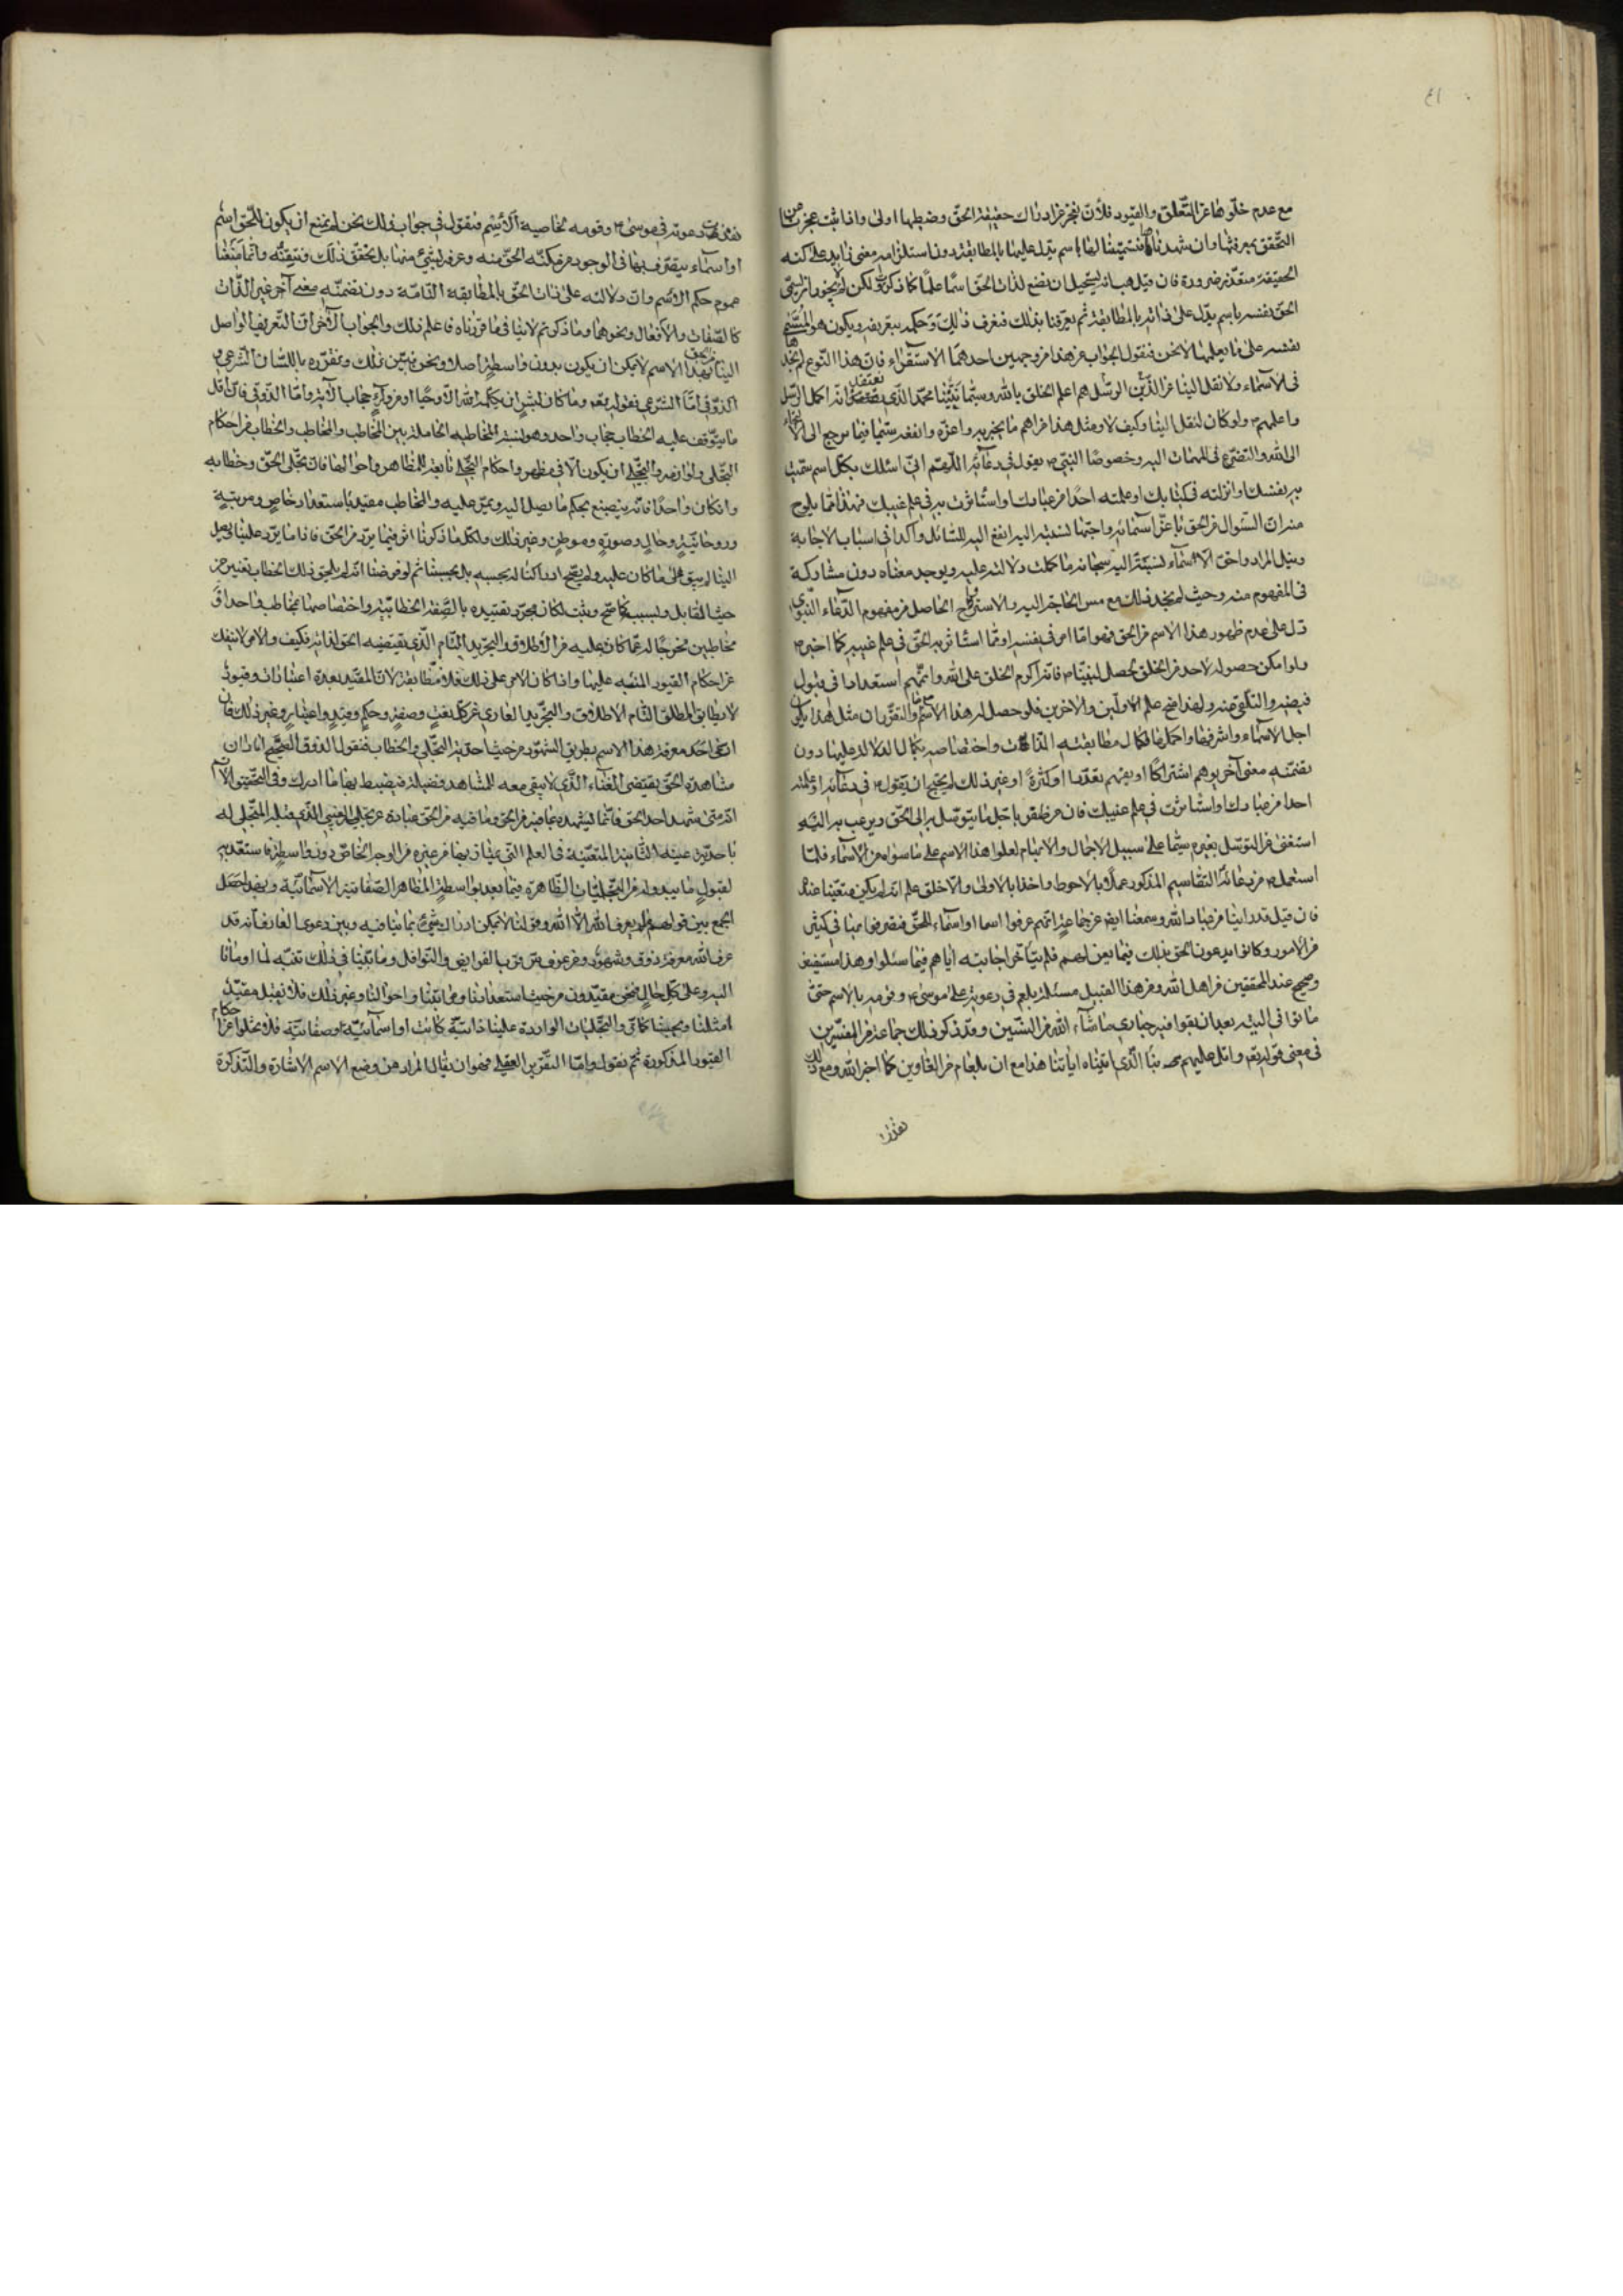 ٤١
مع عدم خلوها عن التعلق والقيود فلان نعجز عن ادراك حقيقة الحق وضبطها اولى واذا ثبت عجزنا عن
التحقق بمعرفتها وان شهدناها فتسميتنا لها باسم يدل عليها بالمطابقة دون استلزامه معنى زايد على كنه
الحقيقة متعذر ضرورة فان قيل هب انه يستحيل ان نضع لذات الحق اسما علما كما ذكرت ولكن لم لا يجوز ان يسمي
الحق نفسه باسم يدل على ذاته بالمطابقة ثم يعرفنا بذلك فنعرف ذلك وحكمه بتعريفه ويكون هو المسمي
نفسه على ما يعلمها لا نحن فنقول الجواب عن هذا من وجهين احدهما الاستقراء فان هذا النوع لم نجده
في الاسماء ولا نقل الينا عن الذين الرسل هم اعلم الخلق بالله وسيما نبينا محمد الذي نعتقد انه اكمل الرسل
واعلمهم ولو كان لنقل الينا وكيف لا ومثل هذا من اهم ما يخبر به واعزه وانفعه سيما فيما يرجع الى الالتجاء
الى الله والتضرع في المهمات اليه وخصوصا النبي يقول في دعائه اللهم اني اسئلك بكل اسم سميت
به نفسك او انزلته في كتابك او علمته احدا من عبادك او استأثرت به في علم غيبك فهذا مما يلوح
منه ان السؤال من الحق باعز اسمائه واحقها نسبة اليه انفع للسائل واكد في اسباب الاجابة
ونيل المراد واحق الاسماء نسبة اليه سبحانه ما كملت دلالته عليه ويوحد معناه دون مشاركة
في المفهوم منه وحيث لم نجد ذلك مع مس الحاجة اليه والاسترواح الحاصل من مفهوم الدعاء النبوي
دل على عدم ظهور هذا الاسم من الحق فهو اما امر في نفسه او مما استأثر به الحق في علم غيبه كما اخبر
ولو امكن حصوله لاحد من الخلق لحصل لنبينا فانه اكرم الخلق على الله واتمهم استعدادا في قبول
فيضه والتلقي منه ولهذا منح علم الاولين والاخرين فلو حصل له هذا الاسم والتقرر ان مثل هذا يكون
اجل الاسماء واشرفها واكملها لكمال مطابقته الذات واختصاصه بكمال الدلالة عليها دون
تضمنه معنى آخر يوهم اشتراكا او يفهم تعددا او كثرة او غير ذلك لم يحتج ان يقول في دعائه او علمته
احدا من عبادك او استأثرت في علم غيبك فان من ظفر باجل ما يتوسل به الى الحق ويرغب به اليه
استغنى عن التوسل بغيره سيما على سبيل الاجمال والابهام لعلو هذا الاسم على ما سواه من الاسماء فلما
استعمل في دعائه التقاسيم المذكور عملا بالاحوط واخذا بالاولى والاخلق علم انه لم يكن متعينا عنده
فان قيل قد راينا من عباد الله وسمعنا ايضا عن جماعة انهم عرفوا اسما او اسماء للحق فتصرفوا بها في كثير
من الامور وكانوا يدعون الحق بذلك فيما يعن لهم فلم يتأخر اجابته اياهم فيما سئلوا وهذا مستفيض
وصحيح عند المحققين من اهل الله ومن هذا القبيل مسئلة بلعم في دعوته على موسى وقومه بالاسم حتى
ماتوا في التيه بعد ان بقوا فيه حيارى ما شاء الله من السنين وقد ذكر ذلك جماعة من المفسرين
في معنى قوله تعالى واتل عليهم نبأ الذي اتيناه اياتنا هذا مع ان بلعام من الغاوين كما اخبر الله ومع ذلك
نفذت
نفذت دعوته في موسى وقومه بخاصية الاسم فنقول في جواب ذلك نحن لم نمنع ان يكون للحق اسم
او اسماء يتصرف بها في الوجود من مكنه الحق منه وعرفه بشيء منها بل نحقق ذلك ونتيقنه وانما منعنا
عموم حكم الاسم وان دلالته على ذات الحق بالمطابقة التامة دون تضمنه معنى آخر غير الذات
كالصفات والافعال ونحوهما وما ذكرتم لا ينافي ما قررناه فاعلم ذلك والجواب الآخر ان التعريف الواصل
الينا من الحق بهذا الاسم لا يمكن ان يكون بدون واسطة اصلا ونحن نبين ذلك ونقرره باللسان الشرعي و
الذوقي اما الشرعي فقوله تعالى وما كان لبشر ان يكلمه الله الا وحيا او من وراء حجاب الآية واما الذوقي فان اقل
ما يتوقف عليه الخطاب حجاب واحد وهو نسبة المخاطبة الحاصلة بين المخاطب والمخاطب والخطاب من احكام
التجلي ولوازمه والتجلي لا يكون الا في مظهر واحكام التجلي تابعة للمظاهر واحوالها فان تجلي الحق وخطابه
وان كان واحدا فانه ينصبغ بحكم ما يصل اليه ويمر عليه والمخاطب مقيد باستعداد خاص ومرتبة
وروحانية وحال وصورة وموطن وغير ذلك ولكل ما ذكرنا اثر فيما يرد من الحق فاذا ما يرد علينا ويصل
الينا لم يبق على ما كان عليه ولم يصح ادراكنا له بحسبه بل بحسبنا ثم لو فرضنا انه لم يلحق ذلك الخطاب تغيير من
حيث القابل ونسبته كما صح وثبت لكان مجرد تقييده بالصفة الخطابية واختصاصها بمخاطب واحد او
مخاطبين مخرجا له عما كان عليه من الاطلاق والتجريد التام الذي يقتضيه الحق لذاته فكيف والامر لا ينفك
عن احكام القيود المنبه عليها واذا كان الامر على ذلك فلا مطابقة لان المقيد بعدة اعتبارات وقيود
لا يطابق المطلق التام الاطلاق والتجريد العاري عن كل نعت وصفة وحكم وقيد واعتبار وغير ذلك فان
ادعى احد معرفة هذا الاسم بطريق الشهود من حيث احدية التجلي والخطاب فنقول الذوق الصحيح افاد ان
مشاهدة الحق يقتضي الفناء الذي لا يبقى معه للمشاهد فضلة يضبط بها ما ادرك وفي التحقيق الاتم
انه متى شهد احد الحق فانما يشهده بما فيه من الحق وما فيه من الحق عبارة عن تجليه الغيبي الذي قبله المتجلى له
باحدية عينه الثابتة المتعينة في العلم التي يمتاز بها من غيره من الوجه الخاص دون واسطة فاستعد به
لقبول ما يبدو له من التجليات الظاهرة فيما بعد بواسطة المظاهر الصفاتية والاسمائية وبهذا حصل
الجمع بين قولهم لا يعرف الله الا الله وقولنا لا يمكن ادراك شيء بما ينافيه وبين دعوى العارف انه قد
عرف الله معرفة ذوق وشهود ومن عرف سر قرب الفرايض والنوافل وما بينا في ذلك تنبه لما اومأنا
اليه وعلى كل حال فنحن مقيدون من حيث استعدادنا ومراتبنا واحوالنا وغير ذلك فلا نقبل الا مقيدا
امثلنا وبحسبنا كما مر والتجليات الواردة علينا ذاتية كانت او اسمائية او صفاتية فلا تخلو عن احكام
القيود المذكورة ثم نقول واما التقرير العقلي فهو ان يقال المراد من وضع الاسم الاشارة والتذكرة